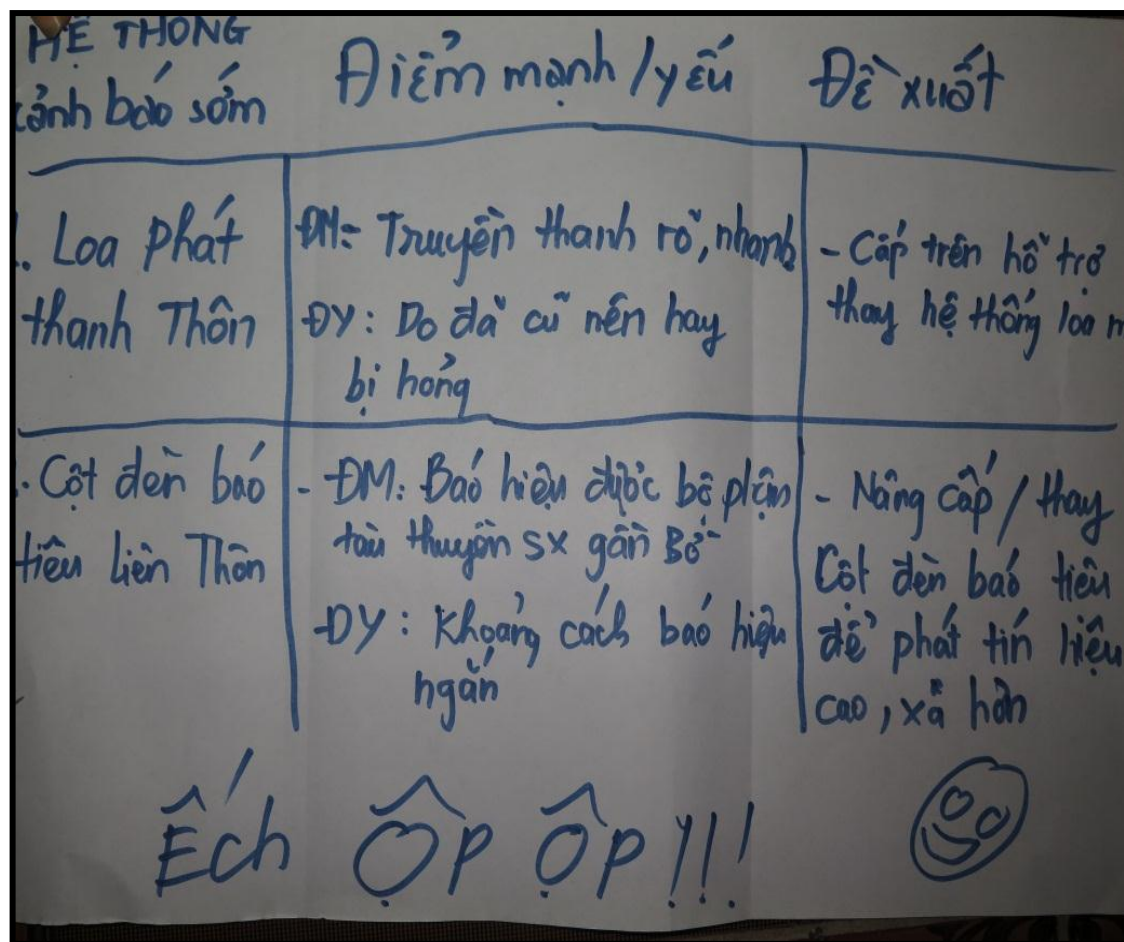 HỆ THỐNG
cảnh báo sớm
Điểm mạnh / yếu
Đề xuất
. Loa phát
thanh Thôn
ĐM: Truyền thanh rõ, nhanh
ĐY: Do đã cũ nên hay
bị hỏng
- Cấp trên hỗ trợ
thay hệ thống loa m
. Cột đèn báo
tiêu liên Thôn
- ĐM: Báo hiệu được bộ phận
tàu thuyền SX gần Bờ
ĐY: Khoảng cách báo hiệu
ngắn
- Nâng cấp / thay
Cột đèn báo tiêu
để phát tín hiệu
cao, xa hơn
Ếch Ộp Ộp !!!